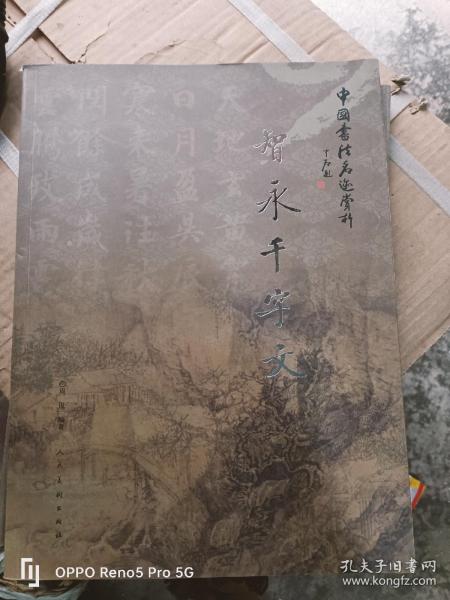 中國書法名迹賞析
智永千字文
天地玄黃
日月盈昃
寒來暑往
閏餘成歲
雲騰致雨
人民美術出版社
OPPO Reno5 Pro 5G
孔夫子旧书网
www.kongfz.com